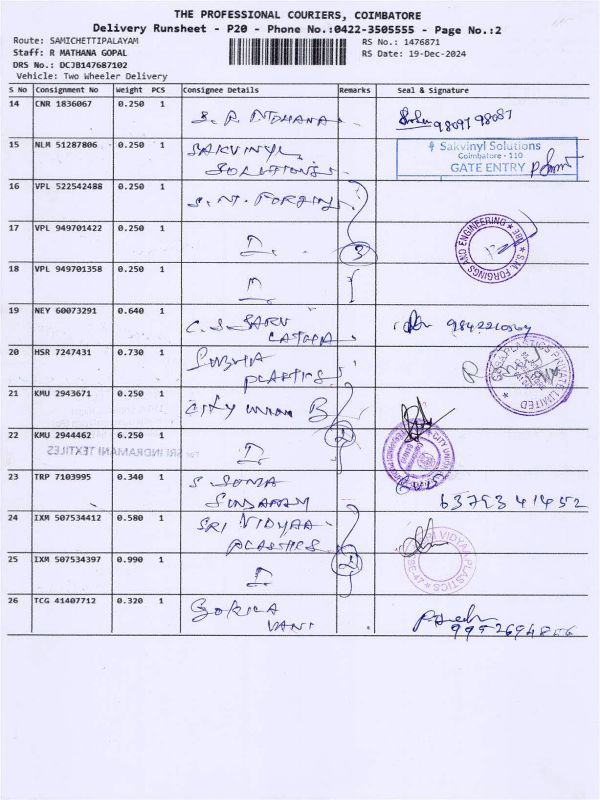 THE PROFESSIONAL COURIERS, COIMBATORE
Delivery Runsheet - P20 - Phone No.:0422-3505555 - Page No.:2
Route: SAMICHETTIPALAYAM RS No.: 1476871
Staff: R MATHANA GOPAL RS Date: 19-Dec-2024
DRS No.: DCJB147687102
Vehicle: Two Wheeler Delivery
S No Consignment No Weight PCS Consignee Details Remarks Seal & Signature
14 CNR 1836067 0.250 1 S. R. 98097 98087
15 NLM 51287806 0.250 1 SAKVINYL
SOLUTIONS
Sakvinyl Solutions
Coimbatore - 110
GATE ENTRY
16 VPL 522542488 0.250 1 S. M. FORGINGS
17 VPL 949701422 0.250 1
3
S.M. FORGINGS AND ENGINEERING
18 VPL 949701358 0.250 1
19 NEY 60073291 0.640 1 C. S. SARV
20 HSR 7247431 0.730 1 SUBHA
PLASTICS
PLASTICS PRIVATE LIMITED
21 KMU 2943671 0.250 1 CITY UNION B
22 KMU 2944462 6.250 1
2
CITY UNION
For SRI INDRAMANI TEXTILES
23 TRP 7103995 0.340 1 S. SONA
SUNDARAM 63793 41452
24 IXM 507534412 0.580 1 SRI VIDYAA
PLASTICS
25 IXM 507534397 0.990 1
2
SRI VIDYAA PLASTICS
CBE-47
26 TCG 41407712 0.320 1 GOKILA
VANI
9952694856